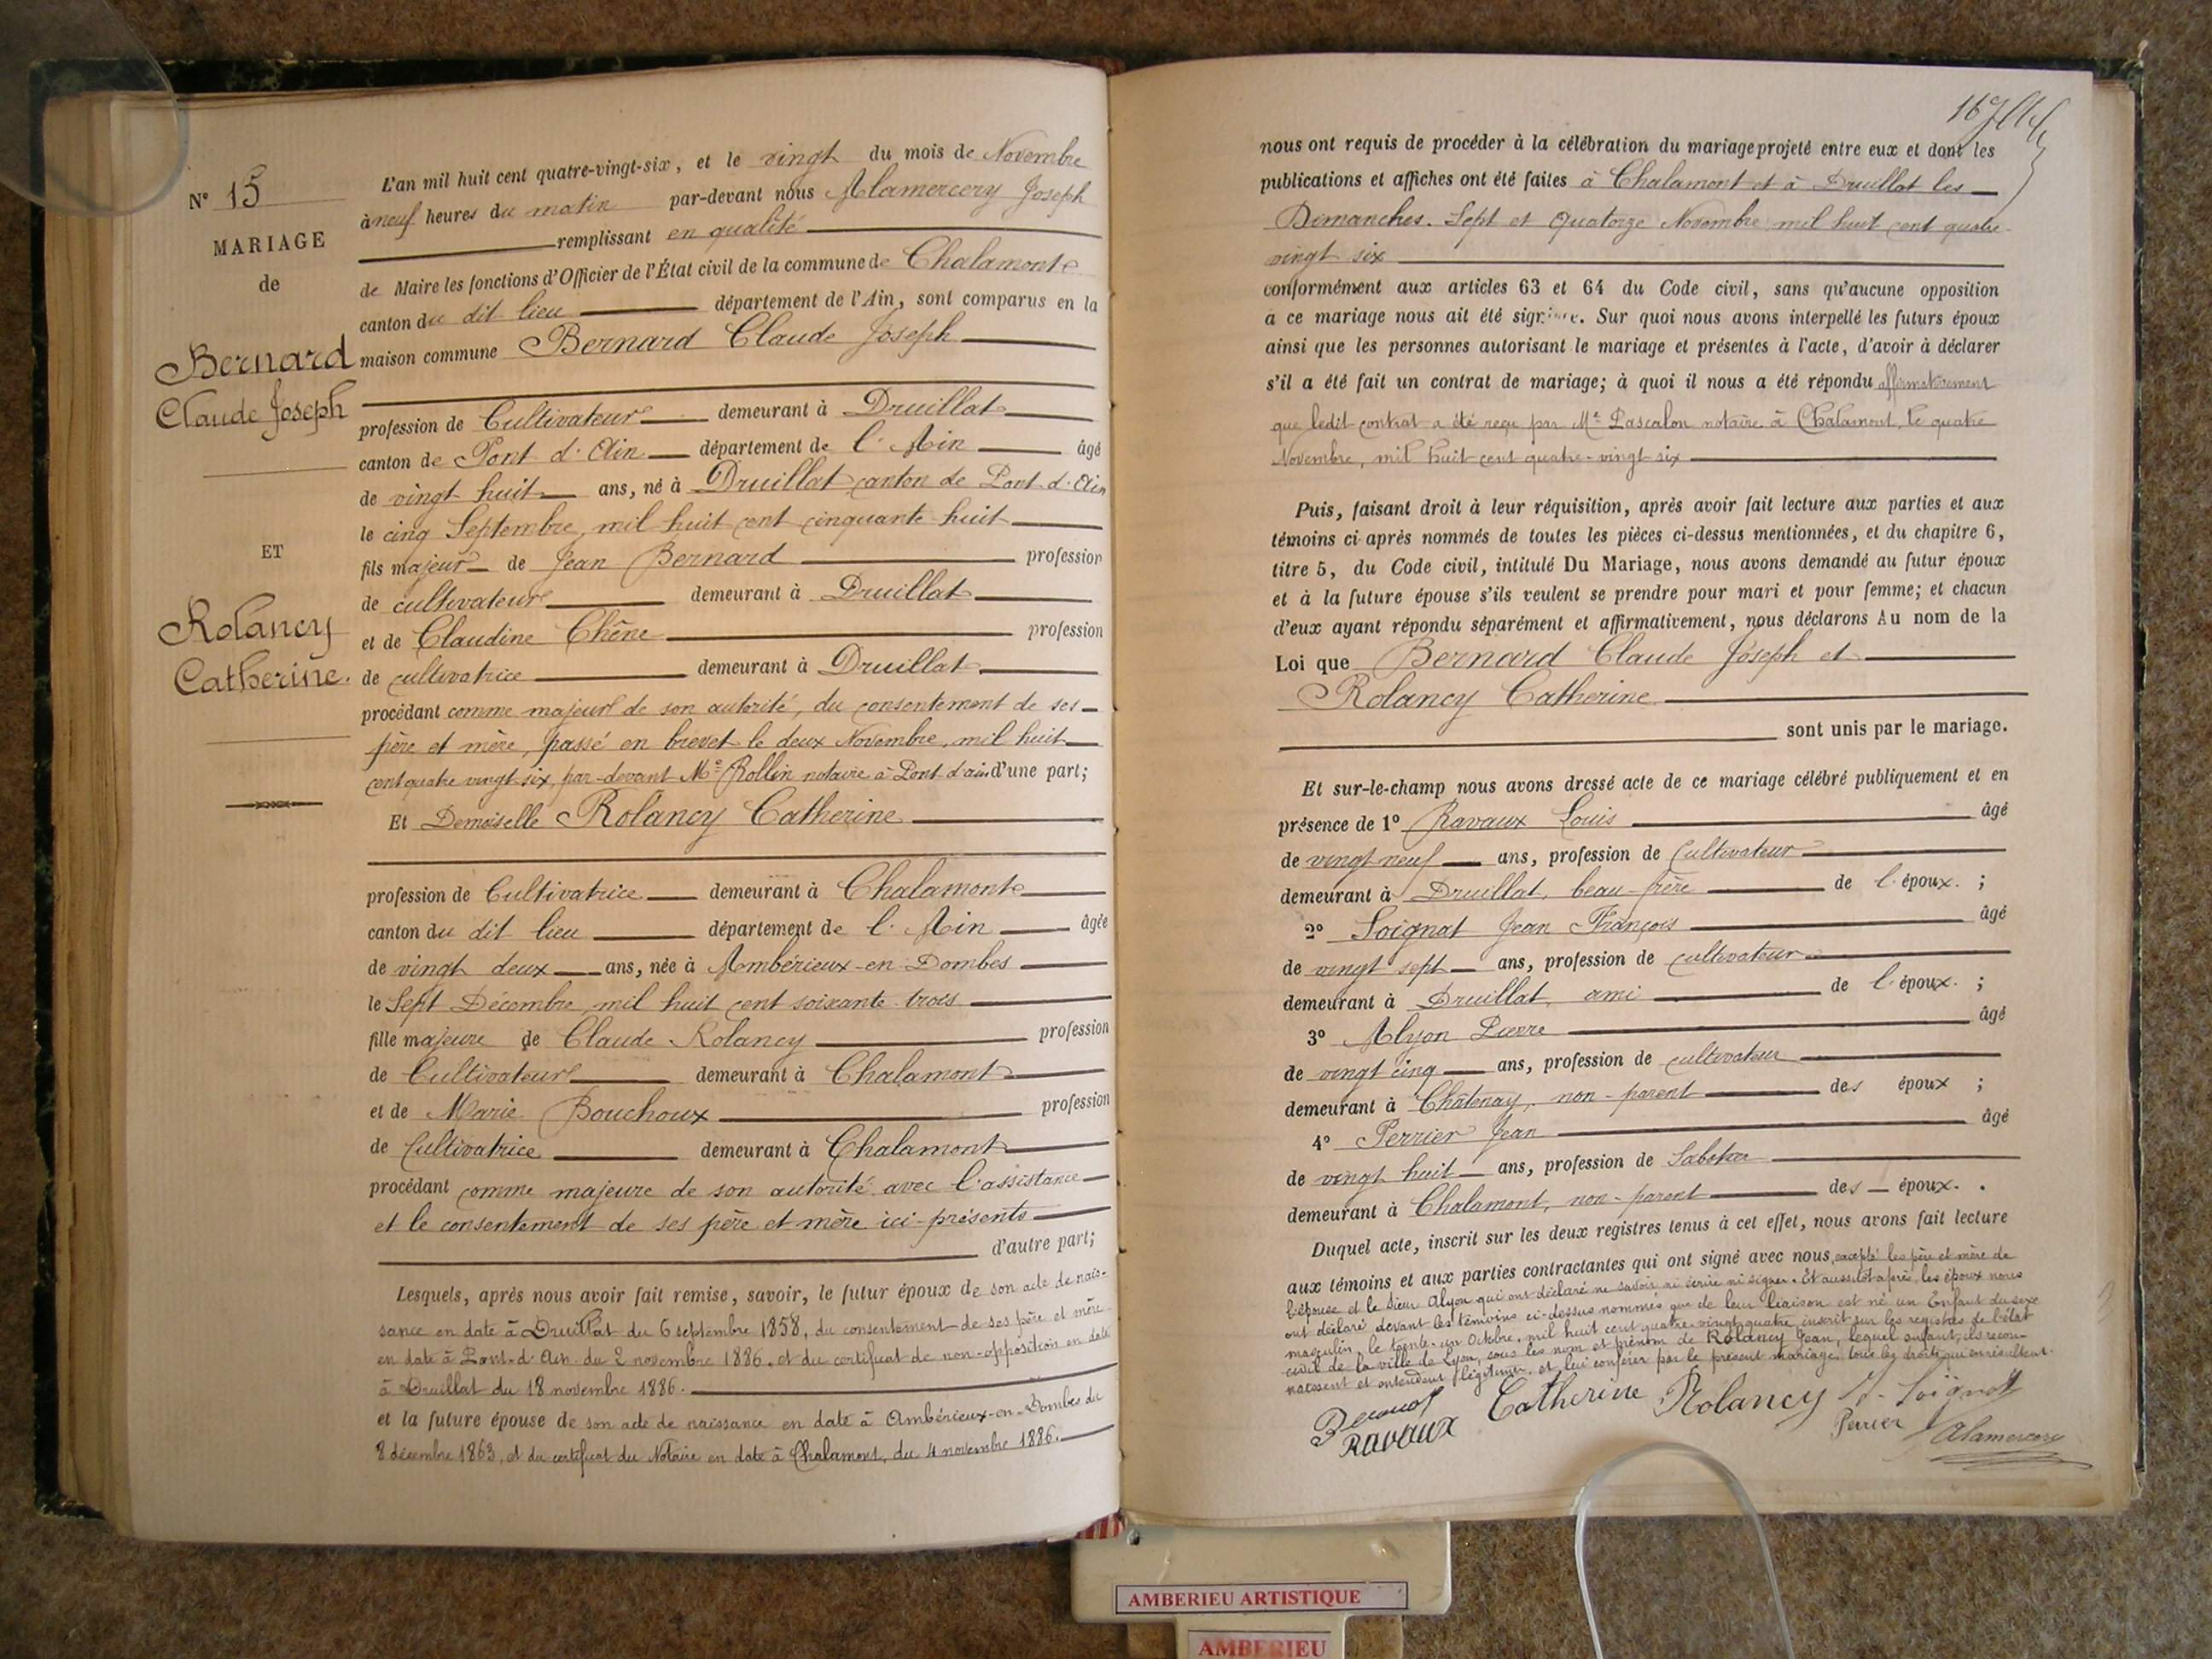 N° 15
MARIAGE
de
Bernard
Claude Joseph
ET
Rolancy
Catherine.
L'an mil huit cent quatre-vingt-six, et le vingt du mois de Novembre
à neuf heures du matin par-devant nous Alamercery Joseph
remplissant en qualité
de Maire les fonctions d'Officier de l'État civil de la commune de Chalamont
canton du dit lieu département de l'Ain, sont comparus en la
maison commune Bernard Claude Joseph
profession de Cultivateur demeurant à Druillat
canton de Pont d'Ain département de l'Ain âgé
de vingt huit ans, né à Druillat canton de Pont d'Ain
le cinq Septembre, mil huit cent cinquante huit
fils majeur de Jean Bernard profession
de cultivateur demeurant à Druillat
et de Claudine Chêne profession
de cultivatrice demeurant à Druillat
procédant comme majeur de son autorité, du consentement de ses
père et mère, passé en brevet le deux Novembre, mil huit
cent quatre vingt-six, par-devant Me Rollin notaire à Pont-d'ain d'une part;
Et Demoiselle Rolancy Catherine
profession de Cultivatrice demeurant à Chalamont
canton du dit lieu département de l'Ain âgée
de vingt deux ans, née à Ambérieux-en-Dombes
le Sept Décembre mil huit cent soixante trois
fille majeure de Claude Rolancy profession
de Cultivateur demeurant à Chalamont
et de Marie Bouchoux profession
de Cultivatrice demeurant à Chalamont
procédant comme majeure de son autorité avec l'assistance
et le consentement de ses père et mère ici-présents
d'autre part;
Lesquels, après nous avoir fait remise, savoir, le futur époux de son acte de nais-
sance en date à Druillat du 6 septembre 1858, du consentement de ses père et mère
en date à Pont-d'Ain du 2 novembre 1886, et du certificat de non-opposition en date
à Druillat du 18 novembre 1886.
et la future épouse de son acte de naissance en date à Ambérieux-en-Dombes du
8 décembre 1863, et du certificat du Notaire en date à Chalamont, du 4 novembre 1886.
16
nous ont requis de procéder à la célébration du mariage projeté entre eux et dont les
publications et affiches ont été faites à Chalamont et à Druillat les
Dimanches. Sept et Quatorze Novembre mil huit cent quatre-
vingt six
conformément aux articles 63 et 64 du Code civil, sans qu'aucune opposition
à ce mariage nous ait été signifiée. Sur quoi nous avons interpellé les futurs époux
ainsi que les personnes autorisant le mariage et présentes à l'acte, d'avoir à déclarer
s'il a été fait un contrat de mariage; à quoi il nous a été répondu affirmativement
que ledit contrat a été reçu par Me Pascalon notaire à Chalamont, le quatre
Novembre, mil huit cent quatre-vingt-six
Puis, faisant droit à leur réquisition, après avoir fait lecture aux parties et aux
témoins ci-après nommés de toutes les pièces ci-dessus mentionnées, et du chapitre 6,
titre 5, du Code civil, intitulé Du Mariage, nous avons demandé au futur époux
et à la future épouse s'ils veulent se prendre pour mari et pour femme; et chacun
d'eux ayant répondu séparément et affirmativement, nous déclarons Au nom de la
Loi que Bernard Claude Joseph et
Rolancy Catherine
sont unis par le mariage.
Et sur-le-champ nous avons dressé acte de ce mariage célébré publiquement et en
présence de 1° Ravaux Louis âgé
de vingt neuf ans, profession de Cultivateur
demeurant à Druillat, beau-frère de l'époux. ;
2° Soignat Jean François âgé
de vingt sept ans, profession de cultivateur
demeurant à Druillat, ami de l'époux. ;
3° Alyon Pierre âgé
de vingt cinq ans, profession de cultivateur
demeurant à Châtenay, non-parent des époux ;
4° Perrier Jean âgé
de vingt huit ans, profession de Sabotier
demeurant à Chalamont, non-parent des époux. .
Duquel acte, inscrit sur les deux registres tenus à cet effet, nous avons fait lecture
aux témoins et aux parties contractantes qui ont signé avec nous, excepté les père et mère de
l'épouse et le sieur Alyon qui ont déclaré ne savoir ni écrire ni signer. Et aussitôt après, les époux nous
ont déclaré devant les témoins ci-dessus nommés que de leur liaison est né un Enfant du sexe
masculin, le trente-un Octobre, mil huit cent quatre-vingt-quatre, inscrit sur les registres de l'état
civil de la ville de Lyon, sous les nom et prénom de Rolancy Jean, lequel enfant, ils recon-
naissent et entendent légitimer, et lui conférer par le présent mariage, tous les droits qui en résultent.
Bernard Catherine Rolancy J. Soignat
Ravaux Perrier Alamercery
AMBERIEU ARTISTIQUE
AMBERIEU